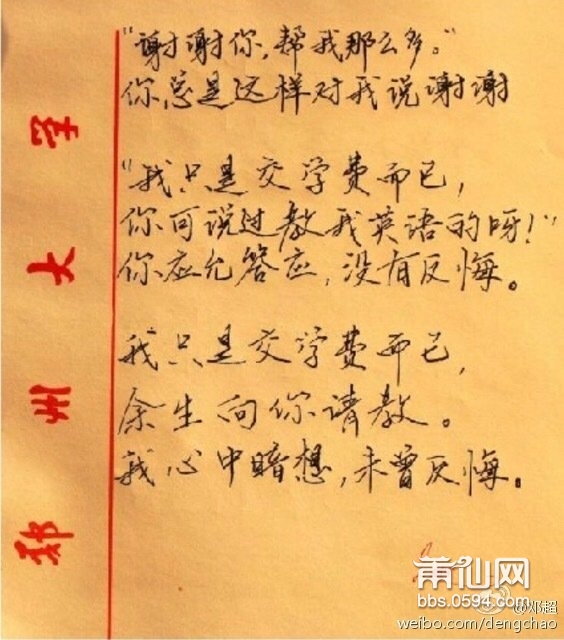 “谢谢你,帮我那么多。”
你总是这样对我说谢谢
“我只是交学费而已,
你可说过教我英语的呀!”
你应允答应,没有反悔。
我只是交学费而已,
余生向你请教。
我心中暗想,未曾反悔。
郑州大学
莆仙网
bbs.0594.com
@邓超
weibo.com/dengchao